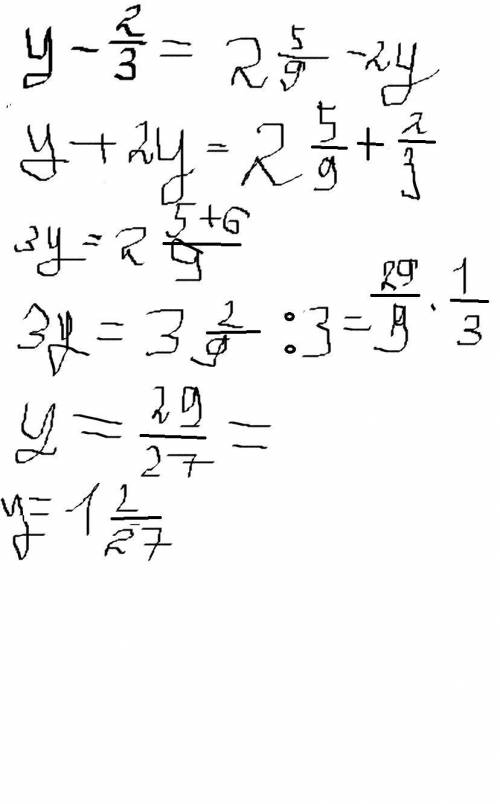 y - 2/3 = 2 5/9 - 2y
y + 2y = 2 5/9 + 2/3
3y = 2 5+6/9
3y = 3 2/9 : 3 = 29/9 · 1/3
y = 29/27 =
y = 1 2/27